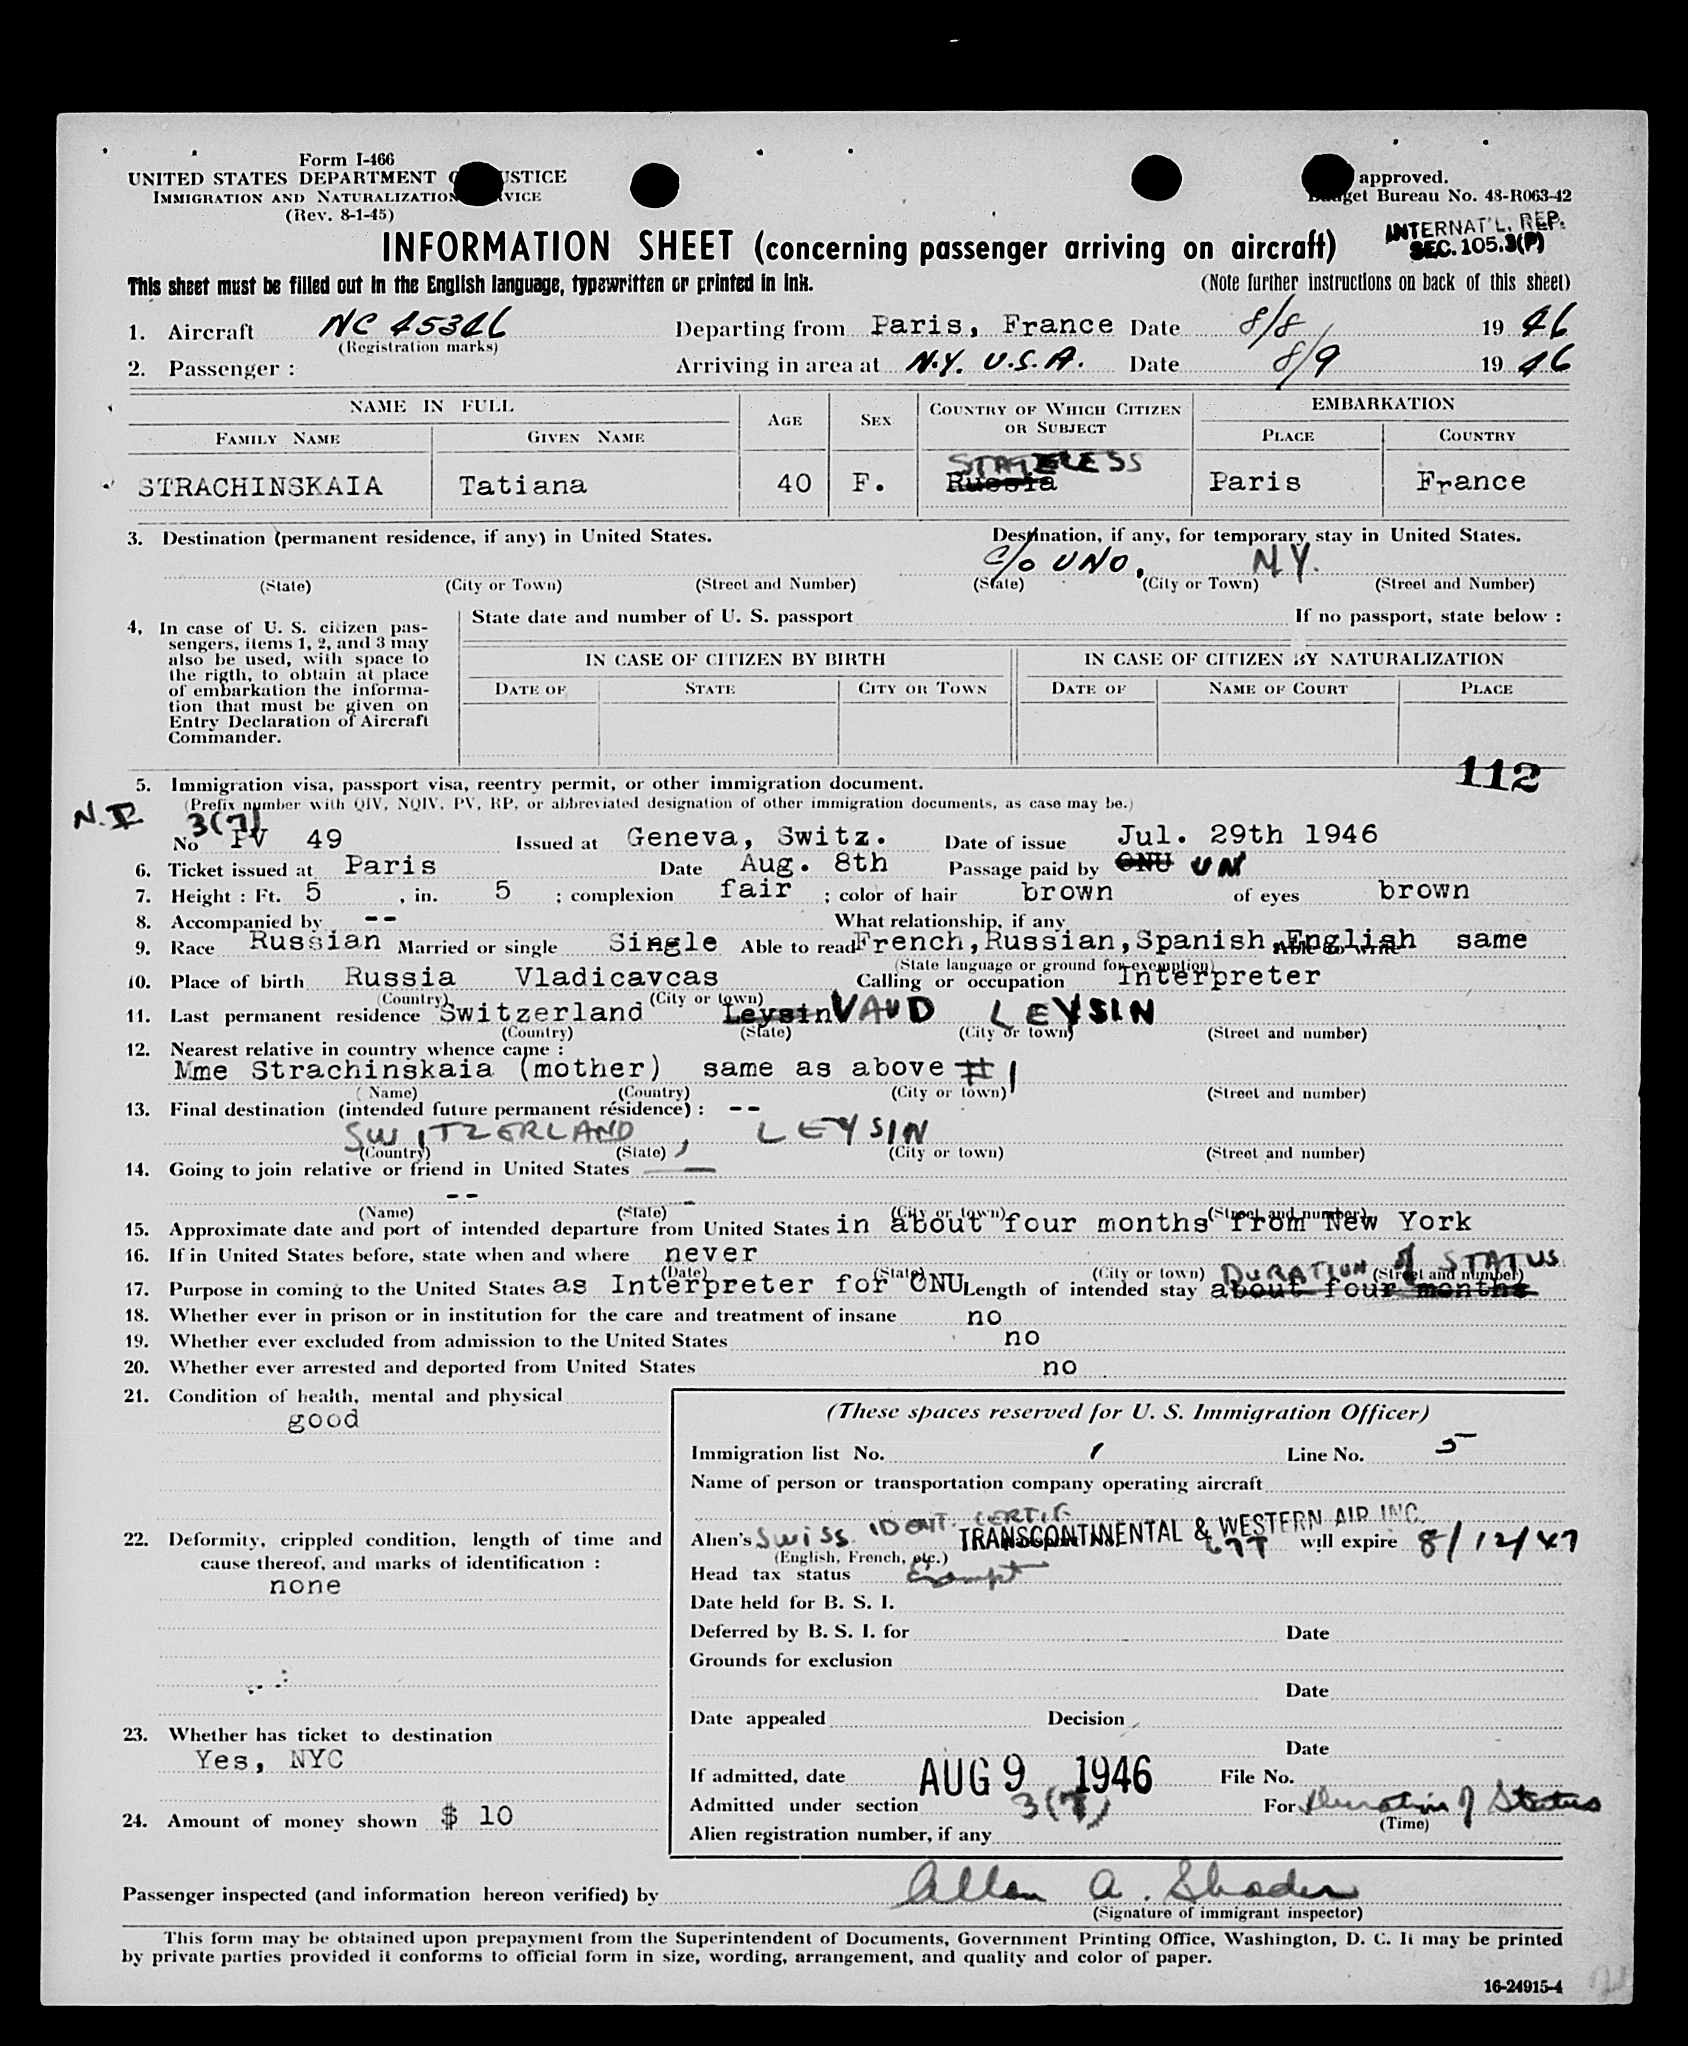 Form I-466
UNITED STATES DEPARTMENT OF JUSTICE
IMMIGRATION AND NATURALIZATION SERVICE
(Rev. 8-1-45)
approved.
Budget Bureau No. 48-R063-42
INTERNAT'L. REP.
SEC. 105.3(P)
INFORMATION SHEET (concerning passenger arriving on aircraft)
This sheet must be filled out in the English language, typewritten or printed in ink.
(Note further instructions on back of this sheet)
1. Aircraft NC 45346 Departing from Paris, France Date 8/8 19 46
(Registration marks)
2. Passenger : Arriving in area at N.Y. U.S.A. Date 8/9 19 46
NAME IN FULL AGE SEX COUNTRY OF WHICH CITIZEN OR SUBJECT EMBARKATION
FAMILY NAME GIVEN NAME PLACE COUNTRY
STATELESS
STRACHINSKAIA Tatiana 40 F. Russia Paris France
3. Destination (permanent residence, if any) in United States. Destination, if any, for temporary stay in United States.
C/o UNO, N.Y.
(State) (City or Town) (Street and Number) (State) (City or Town) (Street and Number)
4, In case of U. S. citizen pas-
sengers, items 1, 2, and 3 may
also be used, with space to
the rigth, to obtain at place
of embarkation the informa-
tion that must be given on
Entry Declaration of Aircraft
Commander.
State date and number of U. S. passport If no passport, state below :
IN CASE OF CITIZEN BY BIRTH IN CASE OF CITIZEN BY NATURALIZATION
DATE OF STATE CITY OR TOWN DATE OF NAME OF COURT PLACE
112
5. Immigration visa, passport visa, reentry permit, or other immigration document.
(Prefix number with QIV, NQIV, PV, RP, or abbreviated designation of other immigration documents, as case may be.)
3(7)
No PV 49 Issued at Geneva, Switz. Date of issue Jul. 29th 1946
6. Ticket issued at Paris Date Aug. 8th Passage paid by ONU UN
7. Height : Ft. 5 , in. 5 ; complexion fair ; color of hair brown of eyes brown
8. Accompanied by -- What relationship, if any
9. Race Russian Married or single Single Able to read French, Russian, Spanish, English Able to write same
(State language or ground for exemption)
10. Place of birth Russia Vladicavcas Calling or occupation Interpreter
(Country) (City or town)
11. Last permanent residence Switzerland Leysin VAUD LEYSIN
(Country) (State) (City or town) (Street and number)
12. Nearest relative in country whence came :
Mme Strachinskaia (mother) same as above # 1
(Name) (Country) (City or town) (Street and number)
13. Final destination (intended future permanent résidence) : --
SWITZERLAND , LEYSIN
(Country) (State) (City or town) (Street and number)
14. Going to join relative or friend in United States —
--
(Name) (State) (City or town) (Street and number)
15. Approximate date and port of intended departure from United States in about four months from New York
16. If in United States before, state when and where never
(Date) (State) (City or town) (Street and number)
DURATION of STATUS
17. Purpose in coming to the United States as Interpreter for ONU Length of intended stay about four months
18. Whether ever in prison or in institution for the care and treatment of insane no
19. Whether ever excluded from admission to the United States no
20. Whether ever arrested and deported from United States no
21. Condition of health, mental and physical
good
22. Deformity, crippled condition, length of time and
cause thereof, and marks of identification :
none
23. Whether has ticket to destination
Yes, NYC
24. Amount of money shown $ 10
(These spaces reserved for U. S. Immigration Officer)
Immigration list No. 1 Line No. 5
Name of person or transportation company operating aircraft
TRANSCONTINENTAL & WESTERN AIR INC.
Alien's SWISS IDENT. CERTIF 677 will expire 8/12/47
(English, French, etc.)
Head tax status Exempt
Date held for B. S. I.
Deferred by B. S. I. for Date
Grounds for exclusion
Date
Date appealed Decision
Date
If admitted, date AUG 9 1946 File No.
Admitted under section 3(7) For Duration of Status
(Time)
Alien registration number, if any
Passenger inspected (and information hereon verified) by Allan A. Shader
(Signature of immigrant inspector)
This form may be obtained upon prepayment from the Superintendent of Documents, Government Printing Office, Washington, D. C. It may be printed
by private parties provided it conforms to official form in size, wording, arrangement, and quality and color of paper.
16-24915-4